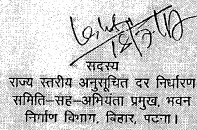 सदस्य
राज्य स्तरीय अनुसूचित दर निर्धारण
समिति-सह-अभियंता प्रमुख, भवन
निर्माण विभाग, बिहार, पटना।